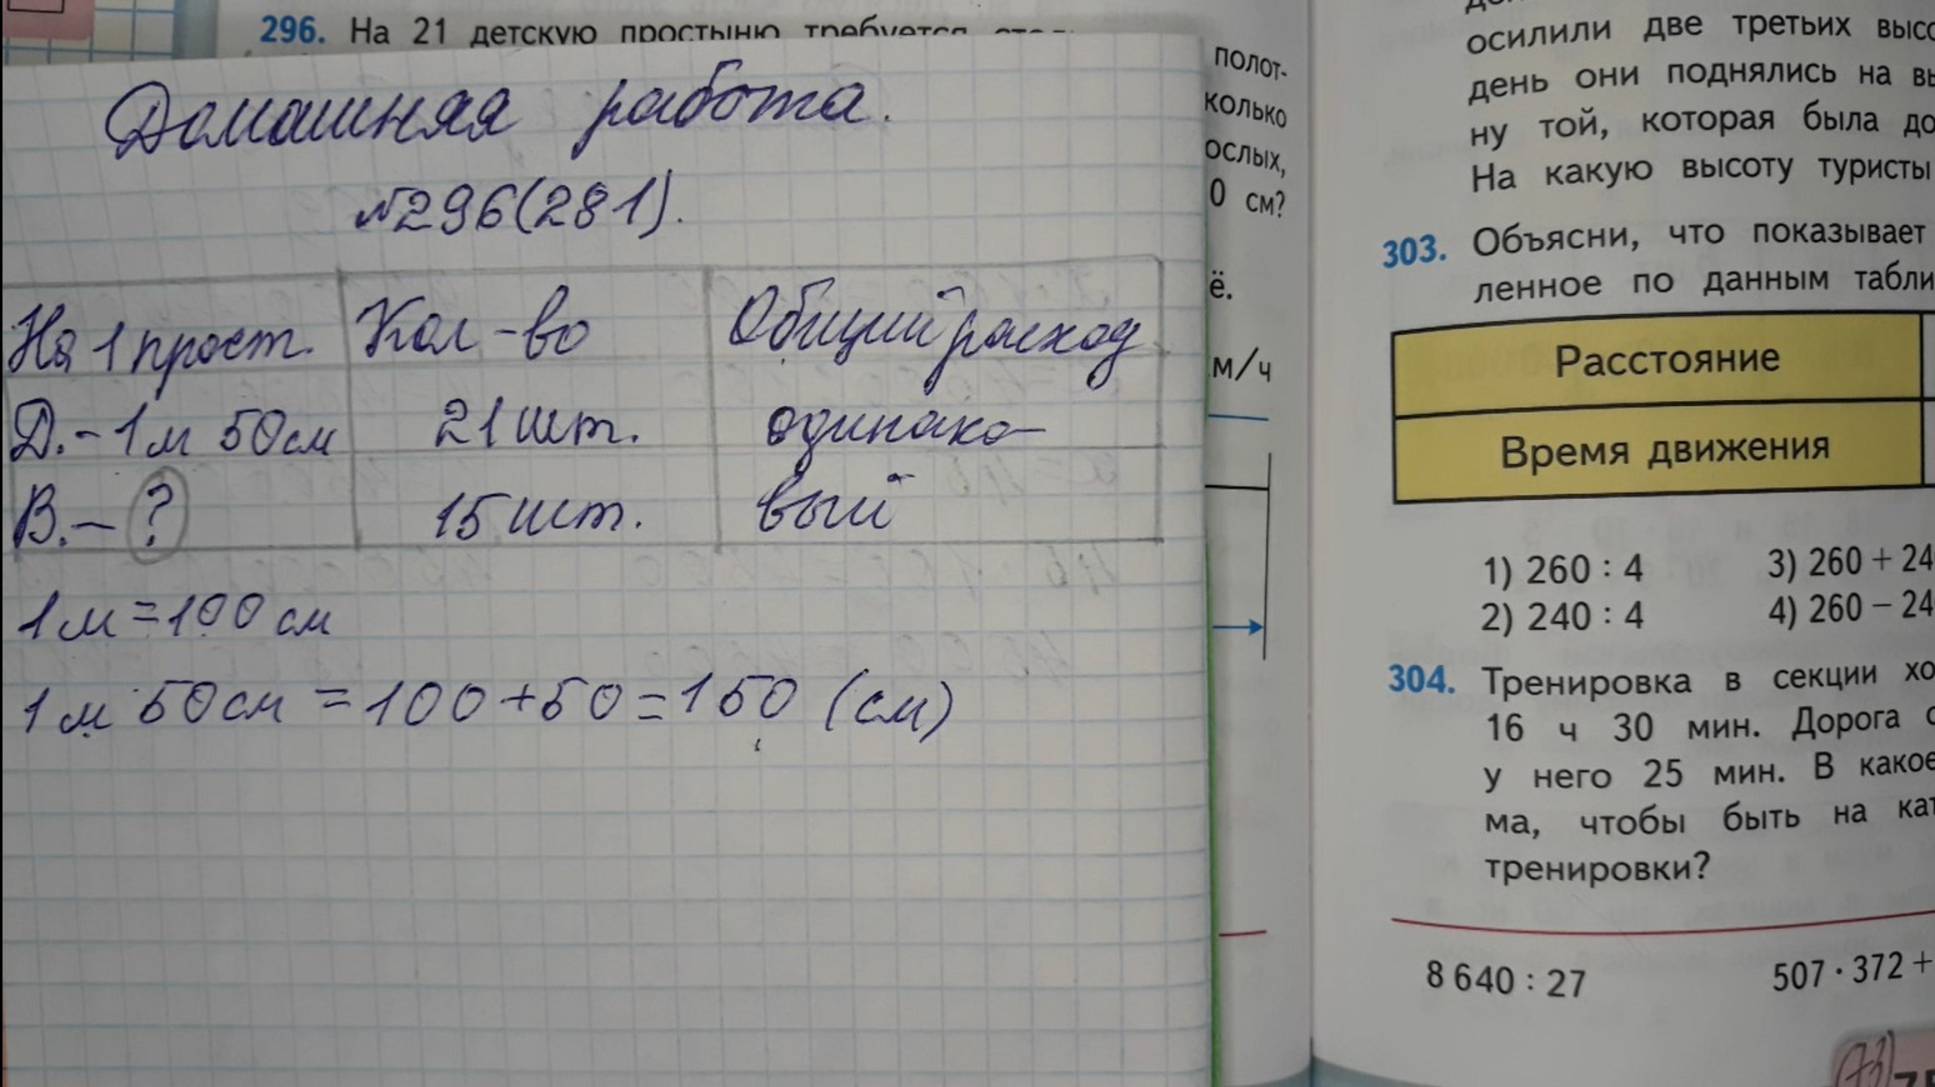 296. На 21 детскую простыню требуется
Домашняя работа.
№296(281).
На 1 прост. Кол-во Общий расход
Д. – 1м 50см 21 шт. одинако–
В. – ? 15 шт. вый
1м = 100 см
1м 50см = 100 + 50 = 150 (см)
полот-
колько
ослых,
0 см?
ё.
м/ч
осилили две третьих высо
день они поднялись на вы
ну той, которая была до
На какую высоту туристы
303. Объясни, что показывает
ленное по данным табли
Расстояние
Время движения
1) 260 : 4 3) 260 + 24
2) 240 : 4 4) 260 − 24
304. Тренировка в секции хо
16 ч 30 мин. Дорога
у него 25 мин. В какое
ма, чтобы быть на кат
тренировки?
8 640 : 27 507 · 372 +